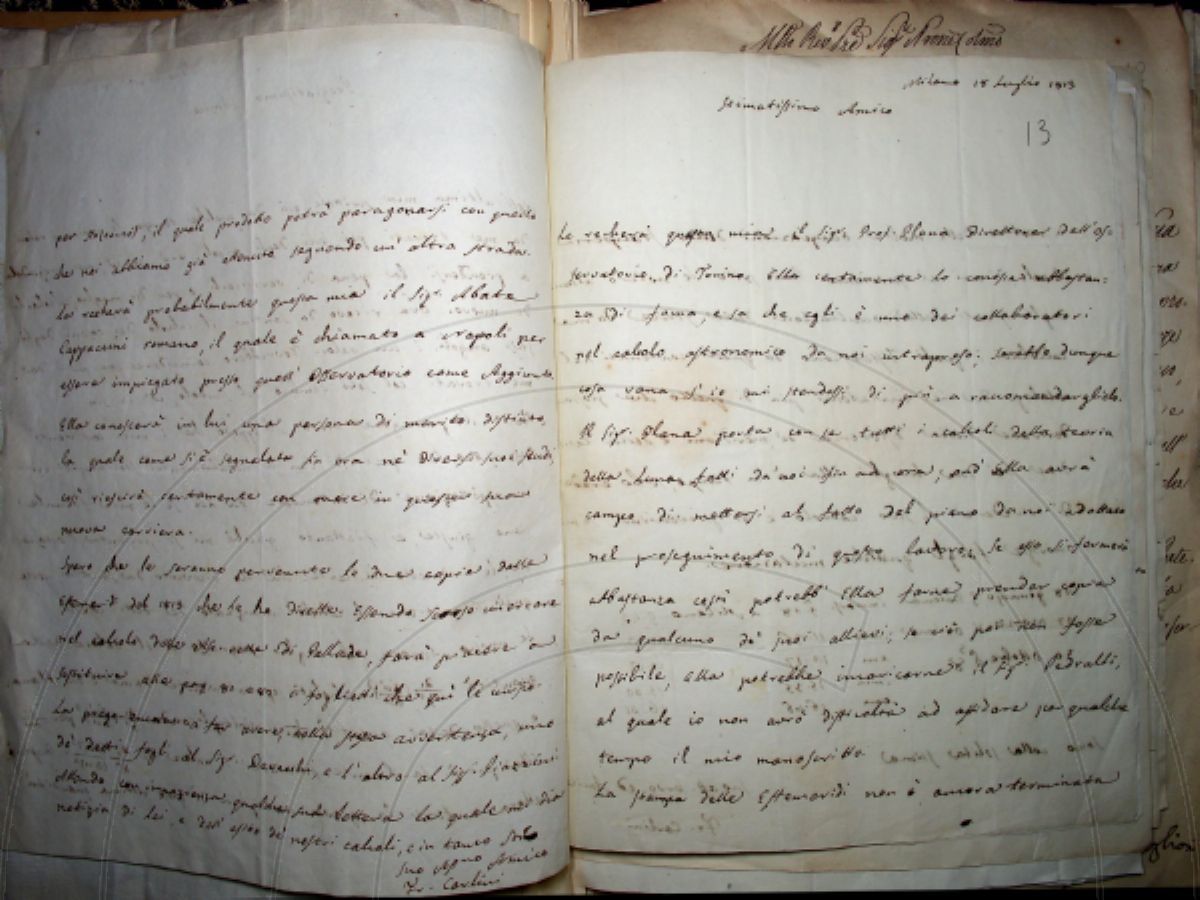 per Bessarod, il quale prodotto potrà paragonarsi con quello
che noi abbiamo già ottenuto seguendo un' altra strada.
Le recherà probabilmente questa mia il Sigr. Abate
Cappaccini romano, il quale è chiamato a Napoli per
essere impiegato presso quell' Osservatorio come Aggiunto.
Ella conoscerà in lui una persona di merito distinto,
la quale come si è segnalata fin ora ne' diversi suoi studj,
così riescirà certamente con onore in questa sua
nuova carriera.
Spero che le saranno pervenute le due copie delle
Effemerdi del 1813 che le ho dirette. Essendo scorso errore
nel calcolo delle di Pallade, farà piacere a
sostituire alle pag. i foglietti che quì le unisco.
La prego di far avere, colla stessa avvertenza, uno
de' detti fogli al Sigr. e l'altro al Sigr. Piazzini
Attendo con impazienza qualche sua lettera la quale mi dia
notizia di lei, e dell' esito de' nostri calcoli, e in tanto sono
suo Affmo Amico
Fr. Carlini
Milano 18 Luglio 1813
Stimatissimo Amico
13
Le recherà questa mia il Sigr. Prof. Plana Direttore dell'os
servatorio di Torino. Ella certamente lo conosce abbastan:
za di fama, e sa che egli è uno dei collaboratori
nel calcolo astronomico da noi intrapreso; sarebbe dunque
cosa vana s'io mi stendessi di più a raccomandarglielo.
Il Sigr. Plana porta con se tutti i calcoli della teoria
della Luna fatti da noi fin ad ora; ond' Ella avrà
campo di mettersi al fatto del piano da noi adottato
nel proseguimento di questo lavoro; se esso si fermerà
abbastanza costì potrebb' Ella farne prender copia
da qualcuno de' suoi allievi; se ciò poi non fosse
possibile, Ella potrebbe incaricarne il Sigr. Pedralli,
al quale io non avrò difficoltà ad affidare per qualche
tempo il mio manoscritto.
La stampa delle Effemeridi non è ancora terminata